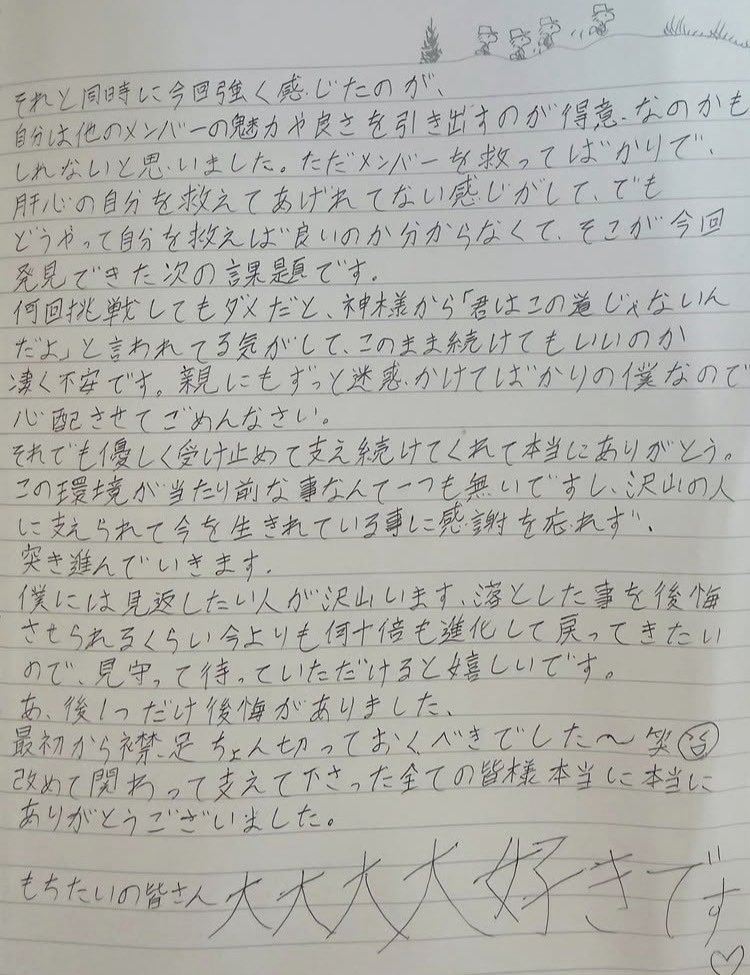 それと同時に今回強く感じたのが、
自分は他のメンバーの魅力や良さを引き出すのが得意なのかも
しれないと思いました。ただメンバーを救ってばかりで、
肝心の自分を救えてあげれてない感じがして、でも
どうやって自分を救えば良いのか分からなくて、そこが今回
発見できた次の課題です。
何回挑戦してもダメだと、神様から「君はこの道じゃないん
だよ」と言われてる気がして、このまま続けてもいいのか
凄く不安です。親にもずっと迷惑かけてばかりの僕なので
心配させてごめんなさい。
それでも優しく受け止めて支え続けてくれて本当にありがとう。
この環境が当たり前な事なんて一つも無いですし、沢山の人
に支えられて今を生きれている事に感謝を忘れず、
突き進んでいきます。
僕には見返したい人が沢山います、落とした事を後悔
させられるくらい今よりも何十倍も進化して戻ってきたい
ので、見守って待っていただけると嬉しいです。
あ、後1つだけ後悔がありました、
最初から襟足ちょん切っておくべきでした〜笑
改めて関わって支えて下さった全ての皆様本当に本当に
ありがとうございました。
もちたいの皆さん大大大大好きです♡